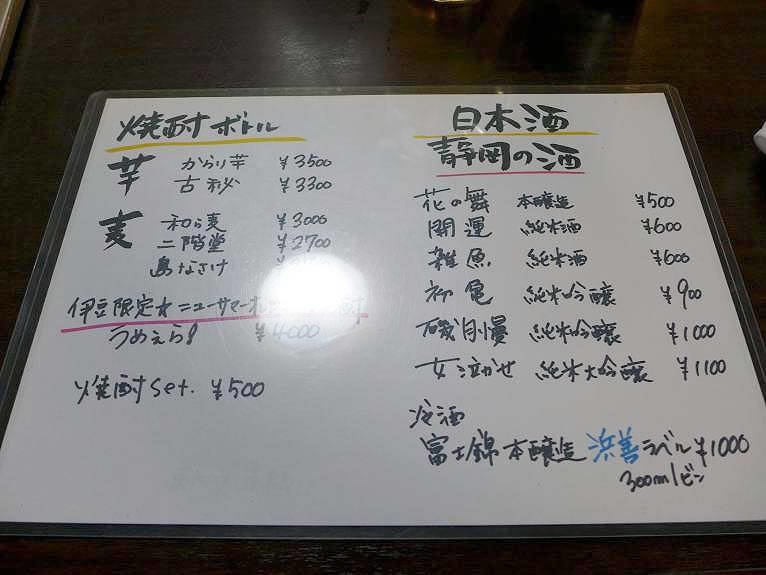 焼酎ボトル
芋 からり芋 ¥3500
古秘 ¥3300
麦 和ら麦 ¥3000
二階堂 ¥2700
島なさけ
伊豆限定★ニューサマーオ 酎
うめぇら! ¥4000
焼酎set. ¥500
日本酒
静岡の酒
花の舞 本醸造 ¥500
開運 純米酒 ¥600
雑魚 純米酒 ¥600
初亀 純米吟醸 ¥900
磯自慢 純米吟醸 ¥1000
女泣かせ 純米大吟醸 ¥1100
冷酒
富士錦 本醸造 浜善ラベル ¥1000
300mlビン